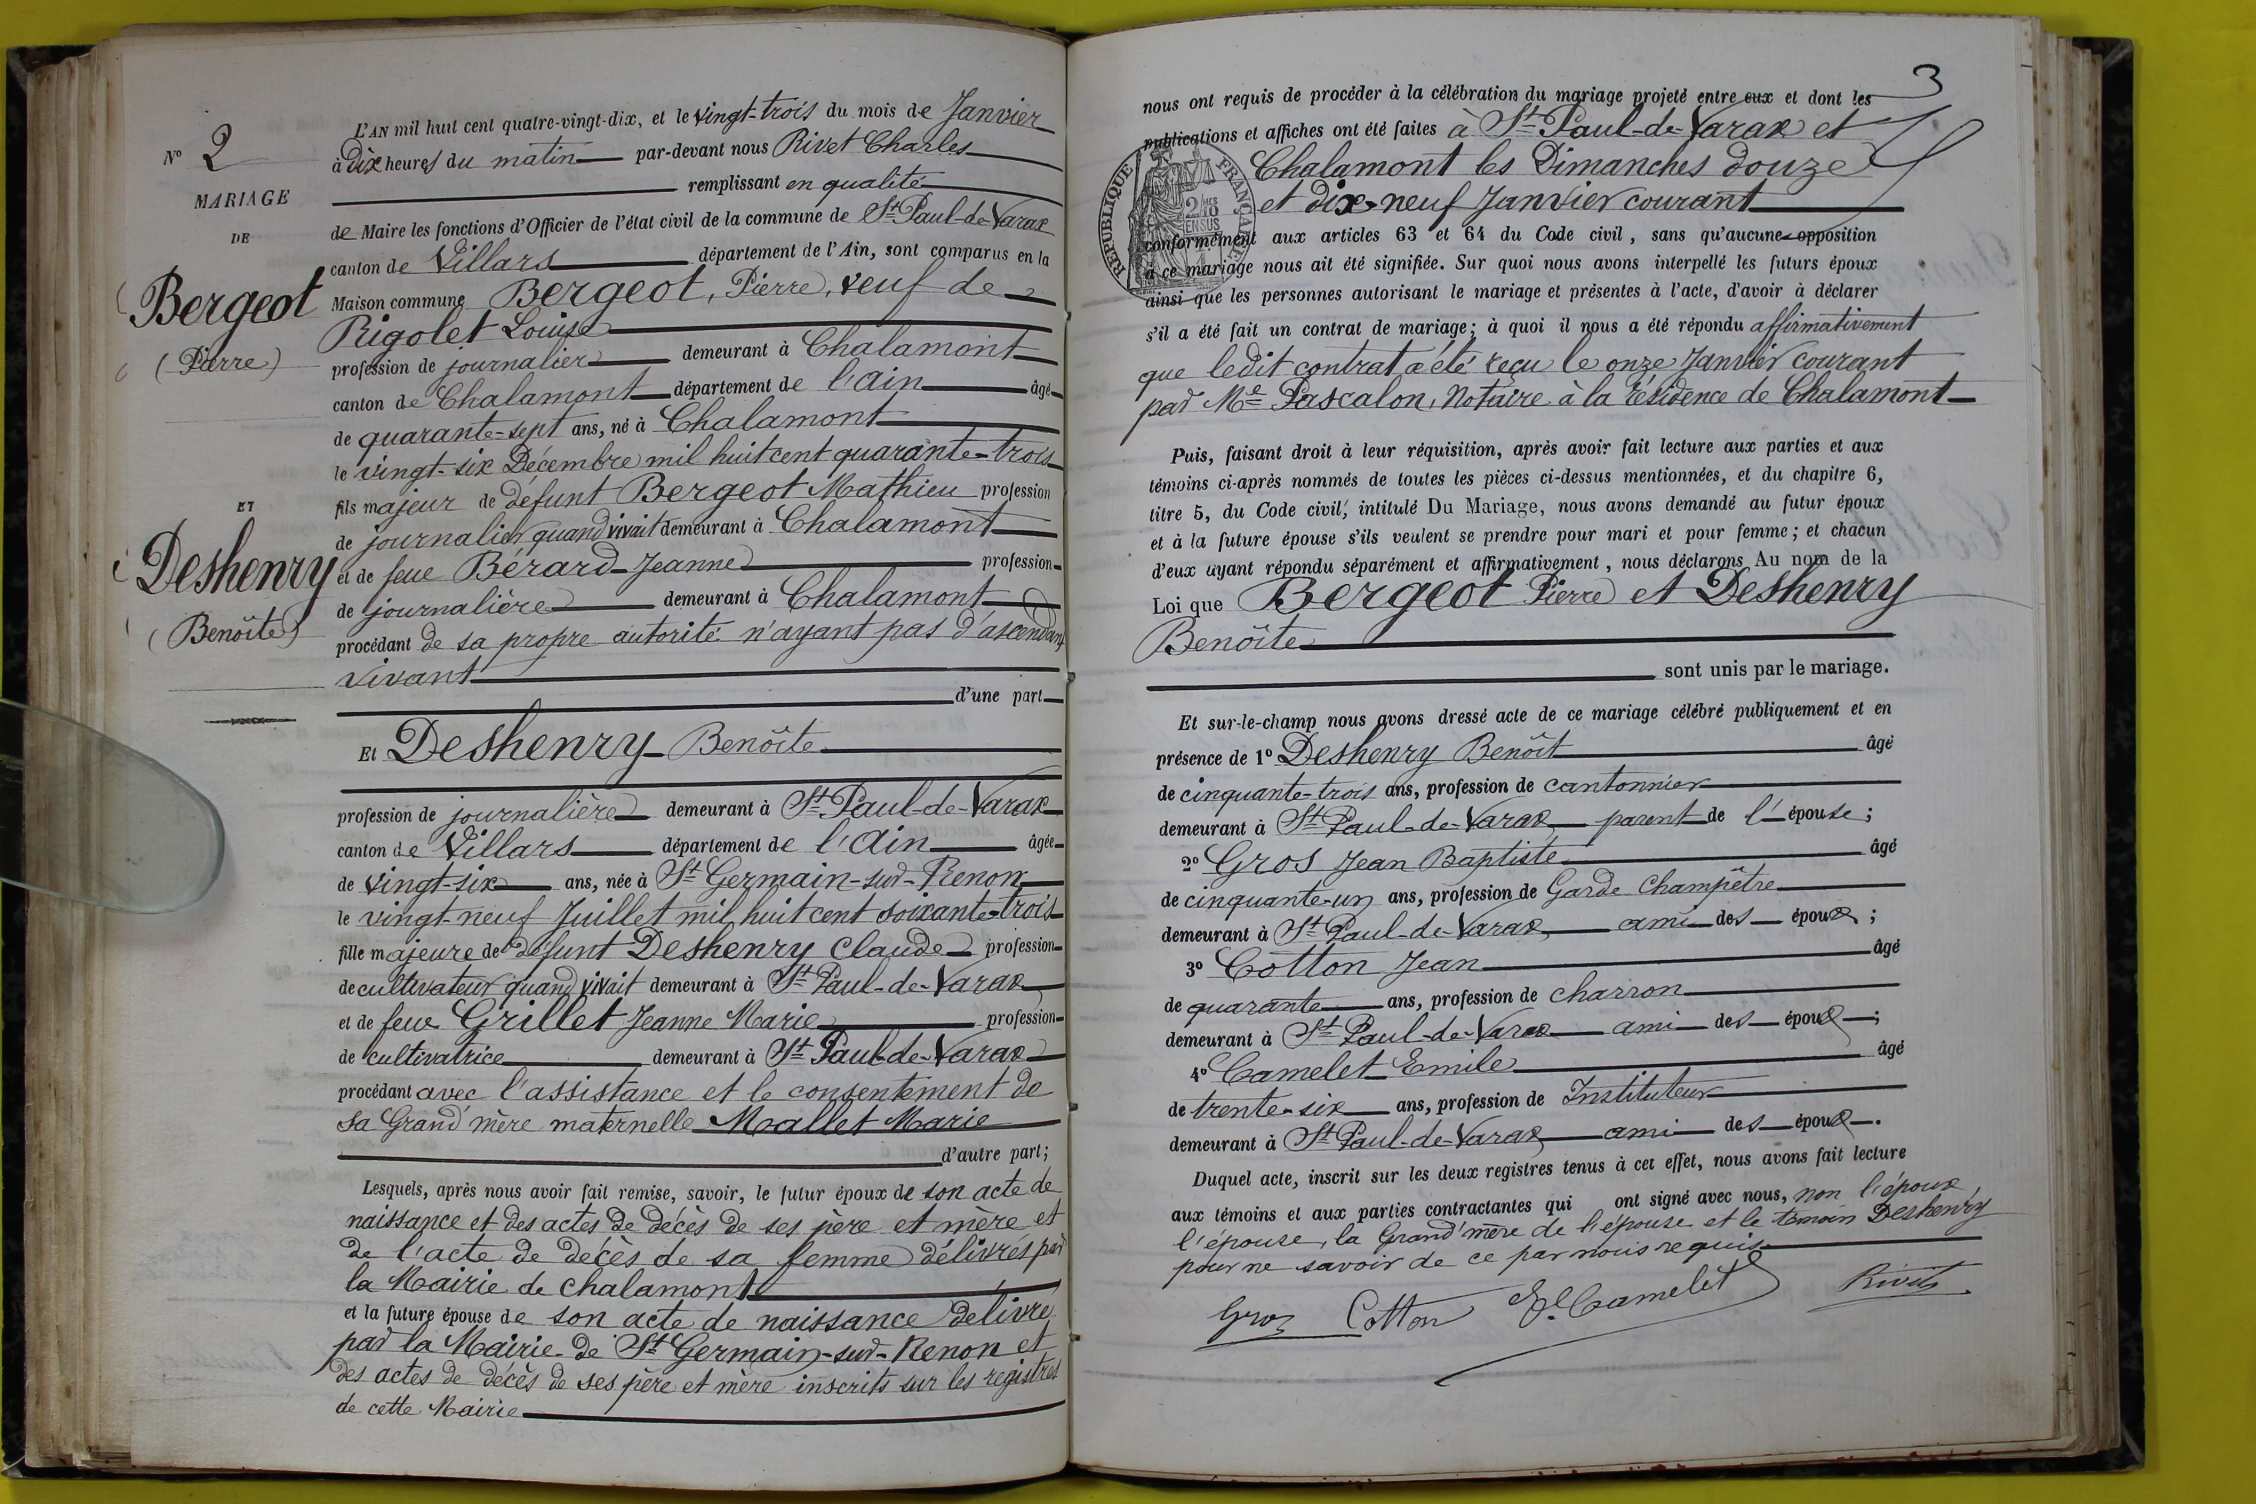 N° 2
MARIAGE
DE
Bergeot
(Pierre)
ET
Deshenry
(Benoîte)
L'AN mil huit cent quatre-vingt-dix, et le vingt-trois du mois de Janvier
à dix heures du matin par-devant nous Rivet Charles
remplissant en qualité
de Maire les fonctions d'Officier de l'état civil de la commune de St Paul-de-Varax
canton de Villars département de l'Ain, sont comparus en la
Maison commune Bergeot, Pierre, veuf de
Rigolet Louise
profession de journalier demeurant à Chalamont
canton de Chalamont département de l'Ain âgé
de quarante-sept ans, né à Chalamont
le vingt-six Décembre mil huit cent quarante-trois
fils majeur de défunt Bergeot Mathieu profession
de journalier quand vivait demeurant à Chalamont
et de feue Bérard Jeanne profession
de journalière demeurant à Chalamont
procédant de sa propre autorité n'ayant pas d'ascendant
vivant
d'une part
Et Deshenry Benoîte
profession de journalière demeurant à St Paul-de-Varax
canton de Villars département de l'Ain âgée
de vingt-six ans, née à St Germain-sur-Renon
le vingt-neuf Juillet mil huit cent soixante-trois
fille majeure de défunt Deshenry Claude profession
de cultivateur quand vivait demeurant à St Paul-de-Varax
et de feue Grillet Jeanne Marie profession
de cultivatrice demeurant à St Paul-de-Varax
procédant avec l'assistance et le consentement de
sa Grand'mère maternelle Mallet Marie
d'autre part;
Lesquels, après nous avoir fait remise, savoir, le futur époux de son acte de
naissance et des actes de décès de ses père et mère et
de l'acte de décès de sa femme délivrés par
la Mairie de Chalamont
et la future épouse de son acte de naissance délivré
par la Mairie de St Germain-sur-Renon et
des actes de décès de ses père et mère inscrits sur les registres
de cette Mairie
3
nous ont requis de procéder à la célébration du mariage projeté entre eux et dont les
publications et affiches ont été faites à St Paul-de-Varax et
Chalamont les Dimanches douze
et dix-neuf Janvier courant
RÉPUBLIQUE FRANÇAISE
conformément aux articles 63 et 64 du Code civil, sans qu'aucune opposition
à ce mariage nous ait été signifiée. Sur quoi nous avons interpellé les futurs époux
ainsi que les personnes autorisant le mariage et présentes à l'acte, d'avoir à déclarer
s'il a été fait un contrat de mariage; à quoi il nous a été répondu affirmativement
que ledit contrat a été reçu le onze Janvier courant
par Me Pascalon, Notaire à la résidence de Chalamont
Puis, faisant droit à leur réquisition, après avoir fait lecture aux parties et aux
témoins ci-après nommés de toutes les pièces ci-dessus mentionnées, et du chapitre 6,
titre 5, du Code civil, intitulé Du Mariage, nous avons demandé au futur époux
et à la future épouse s'ils veulent se prendre pour mari et pour femme; et chacun
d'eux ayant répondu séparément et affirmativement, nous déclarons Au nom de la
Loi que Bergeot Pierre et Deshenry
Benoîte
sont unis par le mariage.
Et sur-le-champ nous avons dressé acte de ce mariage célébré publiquement et en
présence de 1° Deshenry Benoît âgé
de cinquante-trois ans, profession de cantonnier
demeurant à St Paul-de-Varax parent de l'épouse;
2° Gros Jean Baptiste âgé
de cinquante-un ans, profession de Garde Champêtre
demeurant à St Paul-de-Varax ami des époux;
3° Cotton Jean âgé
de quarante ans, profession de charron
demeurant à St Paul-de-Varax ami des époux;
4° Camelet Emile âgé
de trente-six ans, profession de Instituteur
demeurant à St Paul-de-Varax ami des époux.
Duquel acte, inscrit sur les deux registres tenus à cet effet, nous avons fait lecture
aux témoins et aux parties contractantes qui ont signé avec nous, non l'époux,
l'épouse, la Grand'mère de l'épouse et le témoin Deshenry
pour ne savoir de ce par nous requis
Gros Cotton E. Camelet Rivet